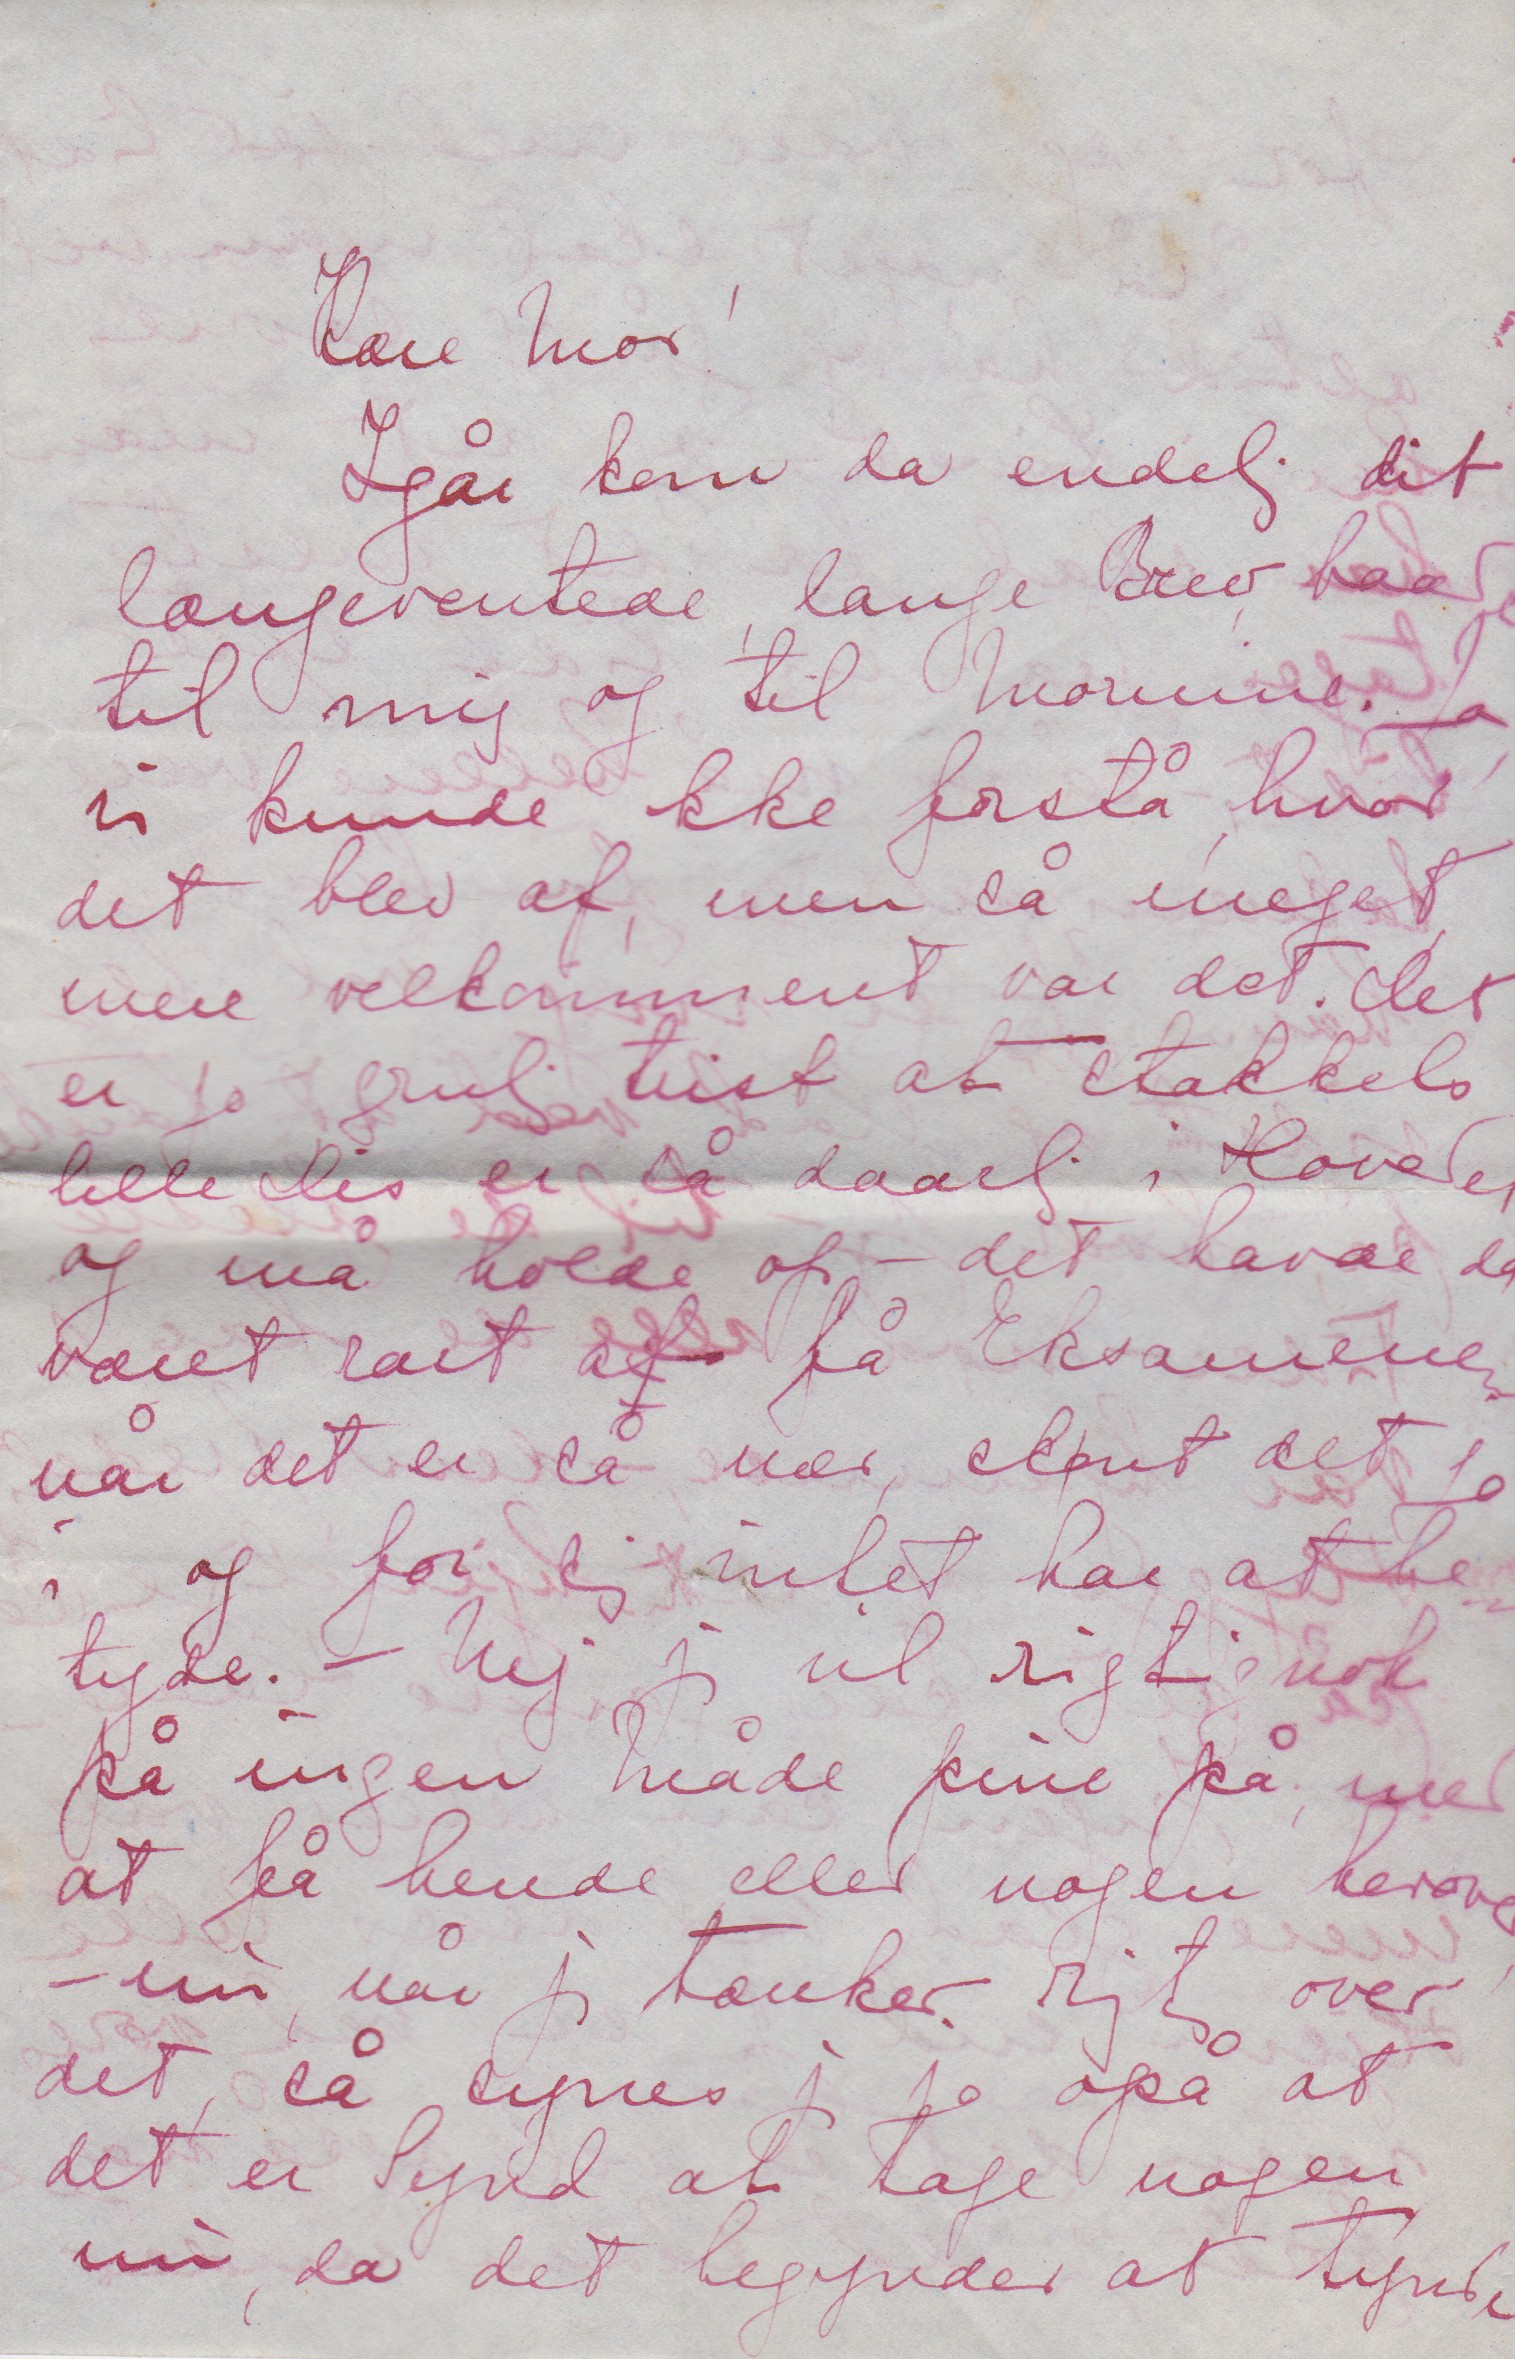 Kære Mor!
Igår kom da endelj dit
længeventede, lange Brev, baade
til mig og til Mornine. Ja,
vi kunde ikke forstå, hvor
det blev af, men så meget
mere velkomment var det. Det
er jo grulj trist at stakkels
lille Dis er så daarlj i Hovedet
og må holde op – det havde da
været rart at få Eksamenen,
når det er så nær, skønt det jo
i og for sig intet har at be
tyde. – Nej, j vil rigtignok
på ingen Måde pine på, med
at få hende eller nogen herover
– nu, når j tænker rigtj over
det, så synes j jo også at
det er Synd at tage nogen
nu, da det begynder at tynde